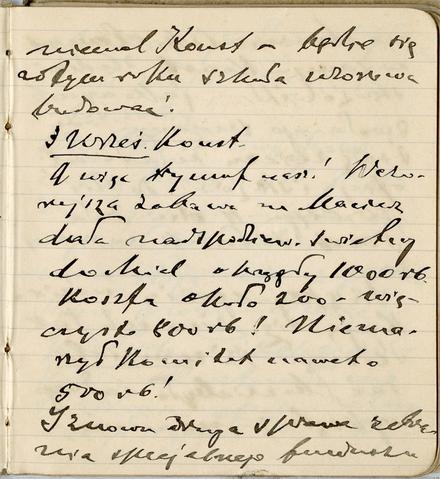 niemal Konst – będzie się
w tym roku szkoła wzorowa
budować.
3 Wrześ. Konst.
A więc tryumf nasz! Wczo-
rajsza zabawa na Macierz
dała nadspodziew. świetny
dochód okrągły 1000 rb.
Koszta około 200 – więc
czysto 800 rb! Nie ma-
rzył Komitet nawet o
500 rb!
I znowu druga sprawa zebra
nia specjalnego funduszu